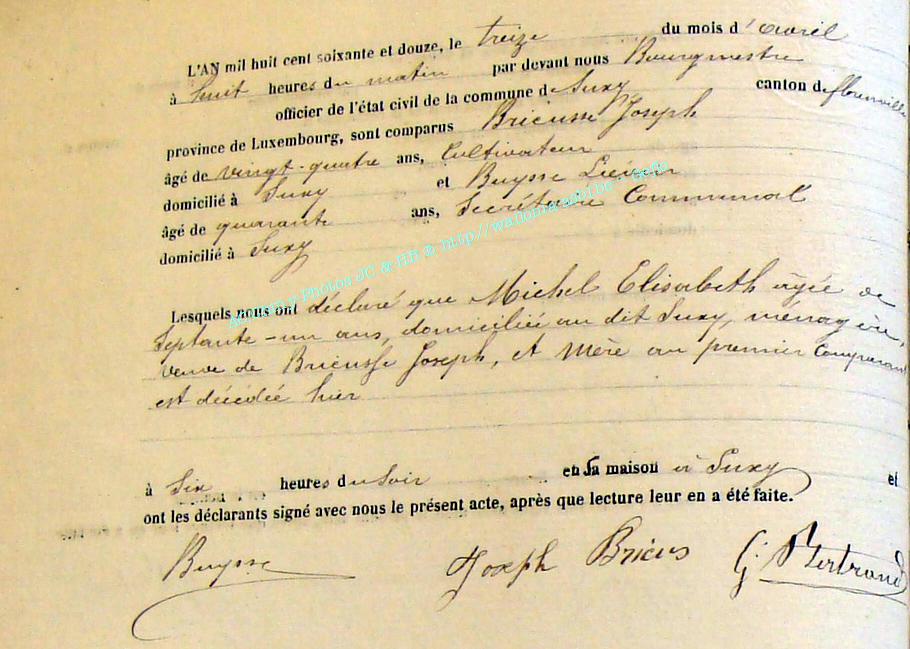 L'AN mil huit cent soixante et douze, le treize du mois d'avril
à huit heures du matin par devant nous Bourgmestre
officier de l'état civil de la commune de Suxy canton de florenville
province de Luxembourg, sont comparus Brieusse Joseph
âgé de vingt-quatre ans, Cultivateur
domicilié à Suxy et Buysse Liévin
âgé de quarante ans, Secrétaire Communal
domicilié à Suxy
Lesquels nous ont déclaré que Michel Elisabeth âgée de
Septante-un ans, domiciliée au dit Suxy, ménagère,
veuve de Brieusse Joseph, et Mère au premier Comparant
est décédée hier
à Six heures du Soir en sa maison à Suxy et
ont les déclarants signé avec nous le présent acte, après que lecture leur en a été faite.
Buysse Joseph Brieus G. Bertrand